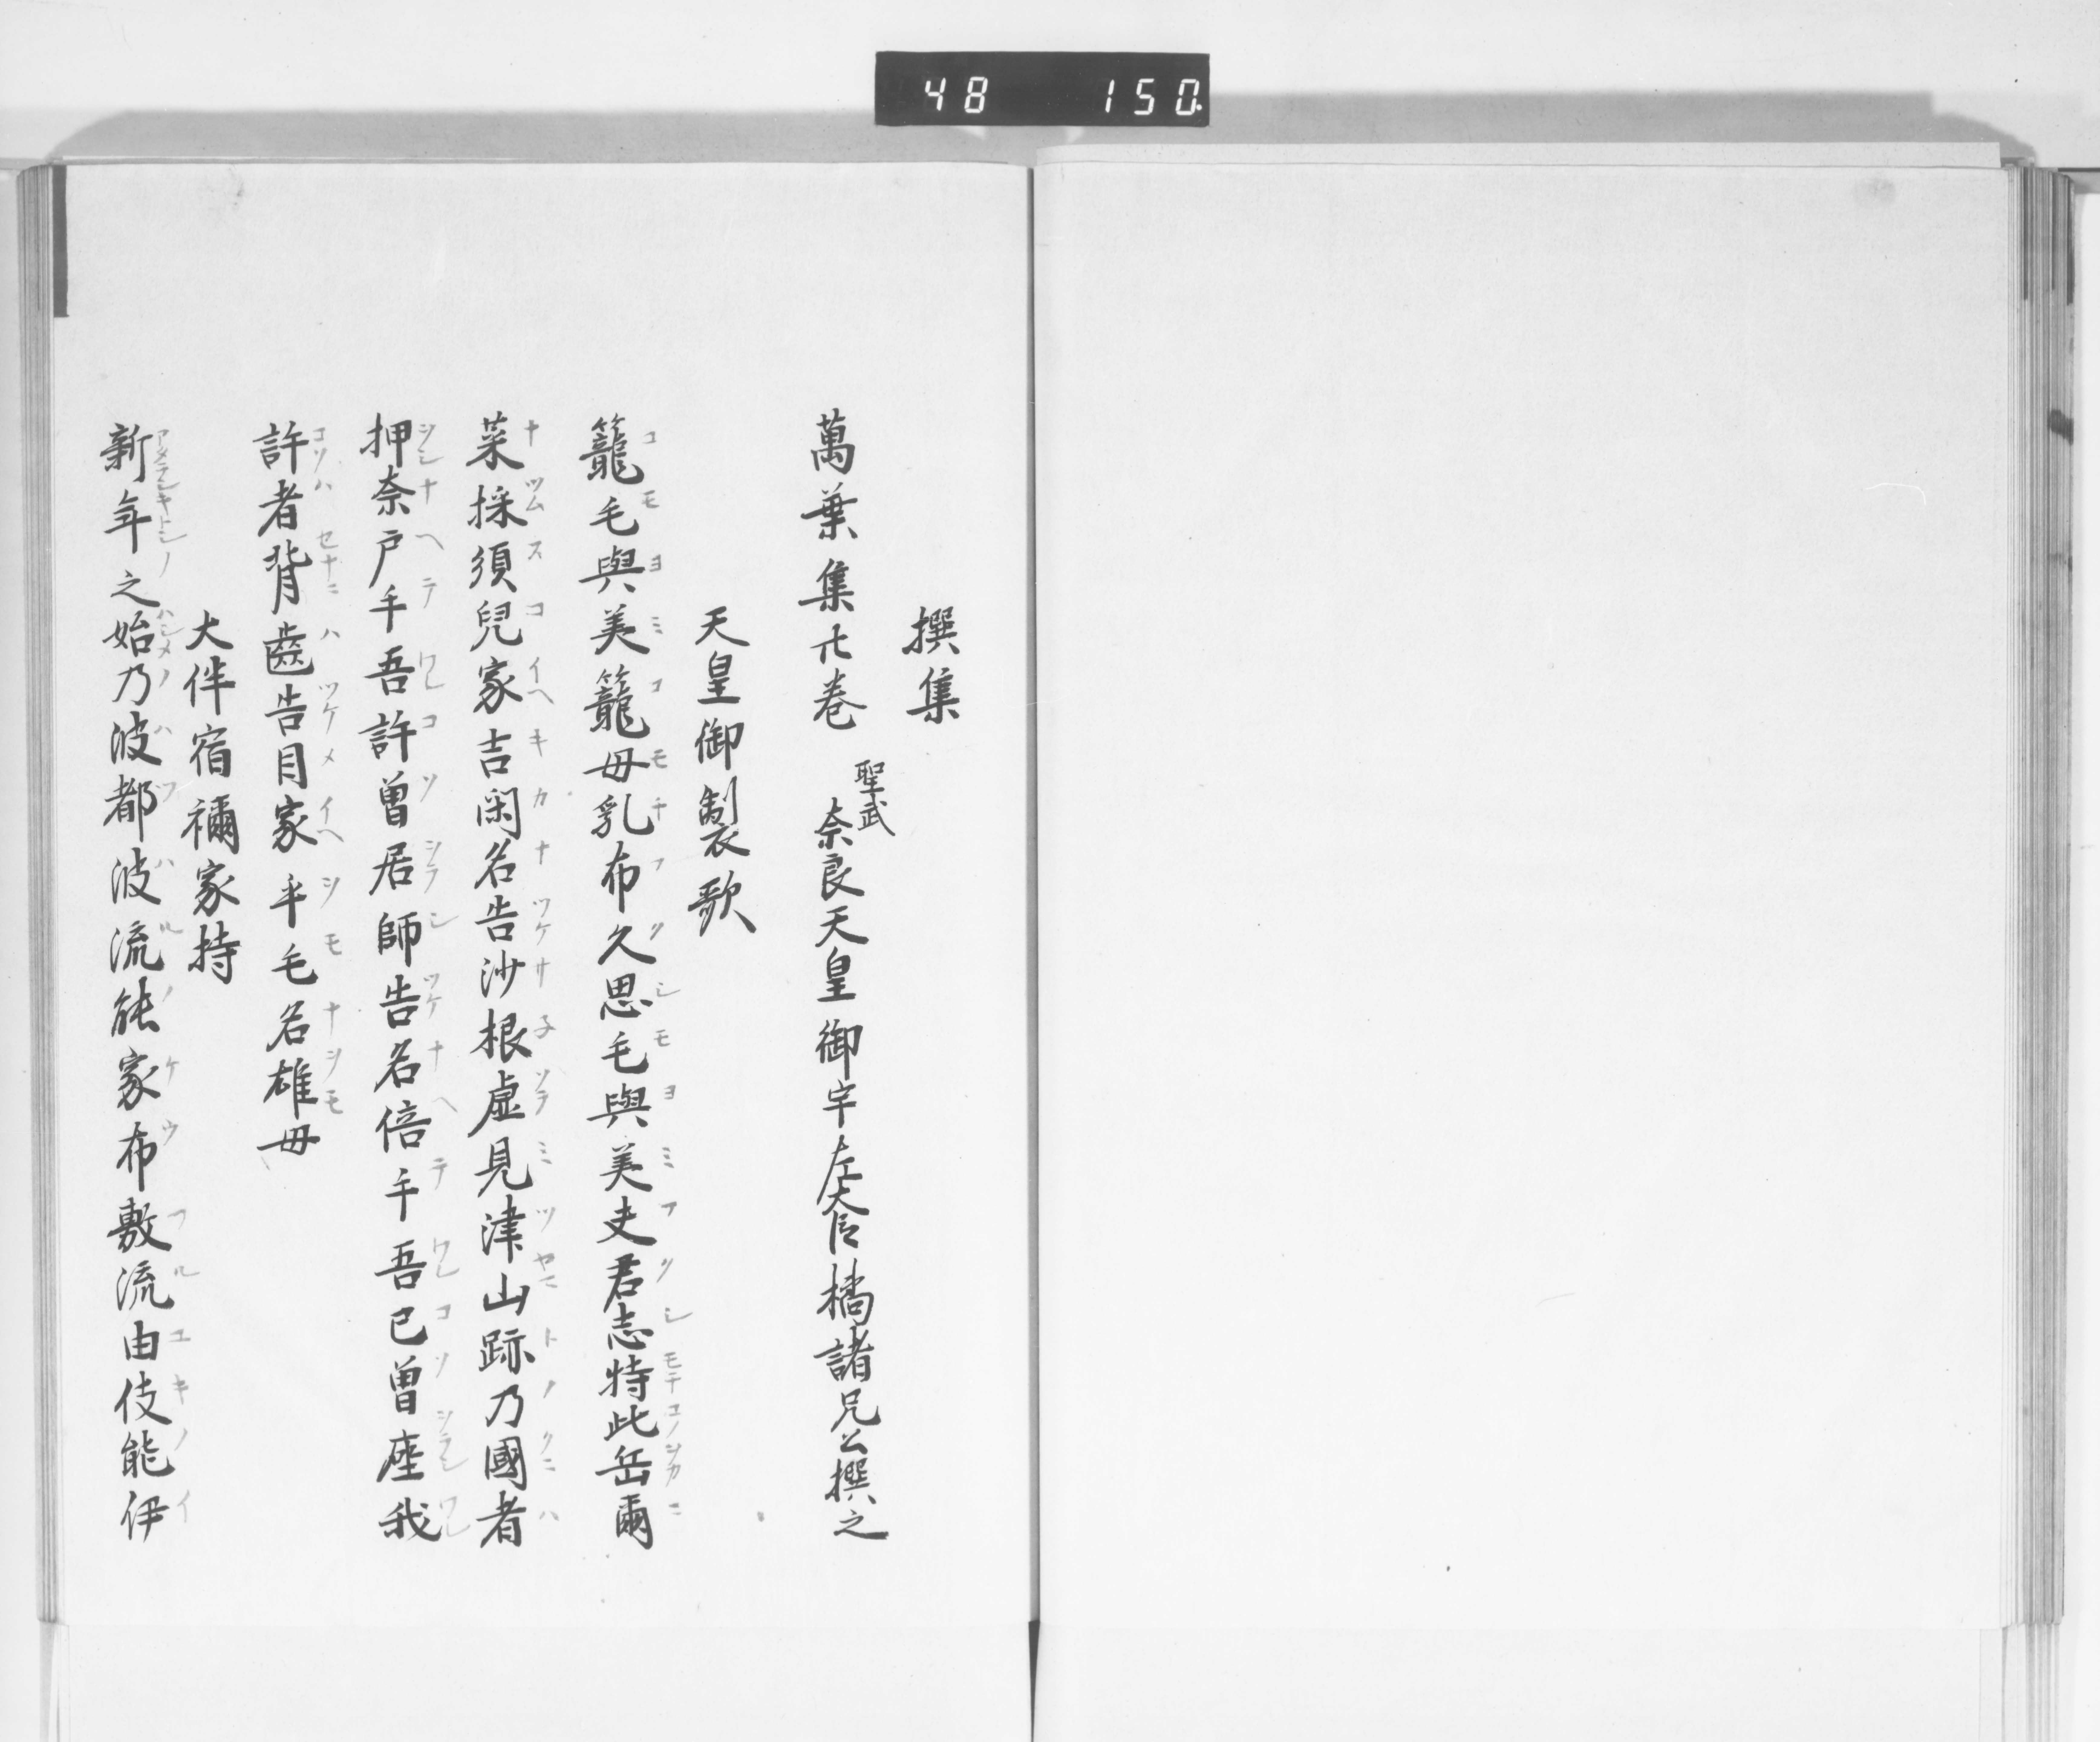 48 150
撰集
萬葉集廿巻 聖武 奈良天皇御宇左大臣橘諸兄公撰之
天皇御製歌
籠毛與美籠毋乳布久思毛與美夫君志持此岳爾
菜採須兒家吉閑名告沙根虛見津山跡乃國者
押奈戸手吾許曽居師告名倍手吾已曽座我
許者背齒告目家乎毛名雄毋
大伴宿禰家持
新年之始乃波都波流能家布敷流由伎能伊